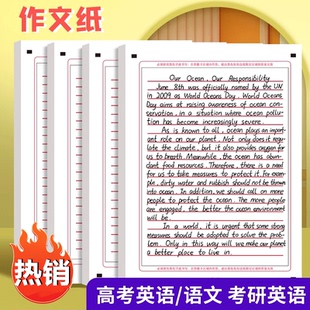 作文纸
Our Ocean, Our Responsibility
June 8th was officially named by the UN
in 2009 as World Oceans Day. World Oceans
Day aims at raising awareness of ocean con-
servation, in a situation where ocean pollut-
tion has become increasingly severe.
As is known to all, ocean plays an import-
ant role on our planet. Not only does it regu-
late the climate, but it also provides oxygen for
us to breath. Meanwhile, the ocean has abun-
dant food resources. Therefore, there is a need
for us to take measures to protect it. For exam-
ple, dirty water and rubbish should not be thrown
into ocean. In addition, we should call on more
people to protect the ocean. The more people
are engaged, the better the ocean environment
will be.
In a world, it is urgent that some strong
measures should be adopted to solve the prob-
lem. Only in this way will we make our planet
a better place to live in.
热销
高考英语/语文 考研英语